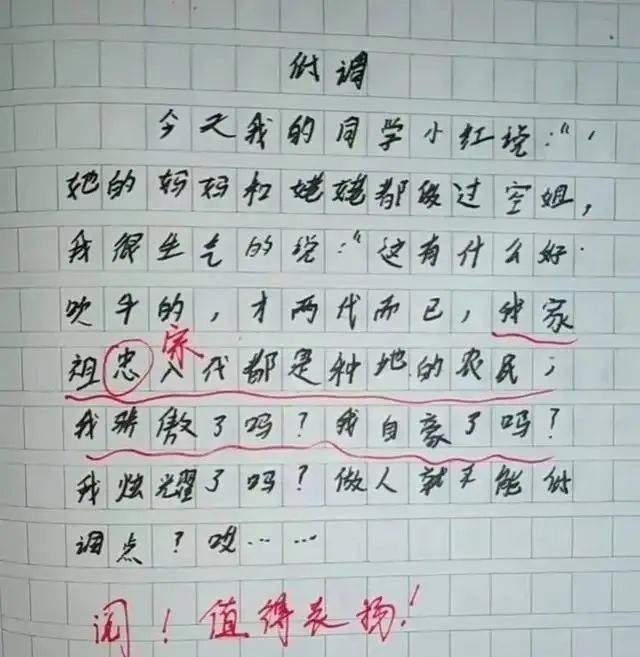 低调
今天我的同学小红说：“，
她的妈妈和姥姥都做过空姐，
我很生气的说：“这有什么好
吹牛的，才两代而已，我家
宗
祖忠八代都是种地的农民，
我骄傲了吗？我自豪了吗？
我炫耀了吗？做人就不能低
调点？哎……
阅！值得表扬！